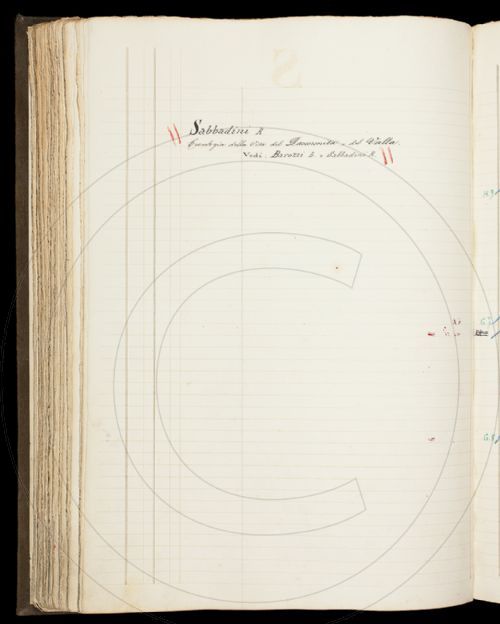 Sabbadini R
Cronologia della Vita del Panormita e del Valla.
Vedi: Barozzi L. e Sabbadini R.